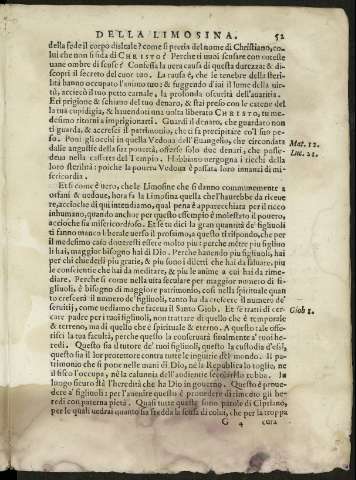 DELLA LIMOSINA. 52
della fede il corpo disleale? come si pregia del nome di Christiano, co
lui che non si fida di CHRISTO? Perche ti vuoi scusare con coteste
vane ombre di scuse? Confessa la vera causa di questa durezza: & di-
scopri il secreto del cuor tuo. La causa è, che le tenebre della steri
lità hanno occupato l'animo tuo: & fuggendo di lui il lume della vir-
tù, accieco il tuo petto carnale, la profonda oscurità dell'avaritia.
Eri prigione & schiavo del tuo denaro, & stai preso con le catene del
la tua cupidigia, & havendoti una volta liberato CHRISTO, tu me-
desimo ritorni a imprigionarti. Guardi il denaro, che guardato non
ti guarda, & accresci il patrimonio, che ti fa precipitare co'l suo pe-
so. Poni gli occhi in quella Vedova dell'Euangelio, che circondata
dalle angustie della sua povertà, offerse solo due denari, che posse-
deva nella cassetta del Tempio. Habbiano vergogna i ricchi della
loro sterilità: poiche la povera Vedova è passata loro innanzi di mi-
sericordia.
Mat. 12.
Luc. 21.
Et se come è vero, che le Limosine che si danno communemente a
orfani & vedove, hora fa la Limosina quella che l'haurebbe da riceue
re, accioche di qui intendiamo, qual pena è apparecchiata per il ricco
inhumano, quando anchor per questo essempio è molestato il povero,
accioche sia misericordioso. Et se tu dici la gran quantità de' figliuoli
ti fanno manco liberale verso il prossimo, a questo ti rispondo, che per
il medesimo caso dovresti essere molto piu: perche mètre piu figliuo
li hai, maggior bisogno hai di Dio. Perche havendo piu figliuoli, hai
per chi chiedergli piu gratie, & piu sono i diletti che hai da saluare, piu
le conscientie che hai da meditare, & piu le anime a cui hai da rime-
diare. Perche si come nella vita secolare per maggior numero di fi-
gliuoli, è bisogno di maggior patrimonio, così nella spirituale quan
to crescerà il numero de' figliuoli, tanto ha da crescere il numero de'
seruitij, come vediamo che faceua il Santo Giob. Et se tratti di cer-
care padre per i tuoi figliuoli, non trattare di quello che è temporale
& terreno, ma di quello che è spirituale & eterno. A questo tale offe-
risci la tua facultà, perche questo la conseruerà finalmente a' tuoi he-
redi. Questo sia il tutore de' tuoi figliuoli, questo la custodia d'essi,
questo sia il lor protettore contra tutte le ingiurie del mondo. Il pa-
trimonio che si pone nelle mani di Dio, nè la Republica lo toglie, ne
il fisco l'occupa, nè la calunnia dell'audientie secolaresche robba. In
luogo sicuro stà l'heredità che ha Dio in gouerno. Questo è proue-
dere a' figliuoli: per l'auenire questo è prouedere di rimedio gli he-
redi con paterna pietà. Quasi tutte queste sono parole di Cipriano,
per le quali vedrai quanto ha fredda la scusa di colui, che per la troppa
Giob 1.
G 4 cura